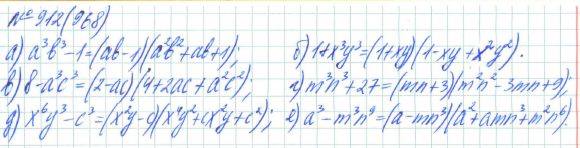 № 912 (968)
а) a³b³-1=(ab-1)(a²b²+ab+1); б) 1+x³y³=(1+xy)(1-xy+x²y²).
в) 8-a³c³=(2-ac)(4+2ac+a²c²); г) m³n³+27=(mn+3)(m²n²-3mn+9);
д) x⁶y³-c³=(x²y-c)(x⁴y²+cx²y+c²); е) a³-m³n⁹=(a-mn³)(a²+amn³+m²n⁶).